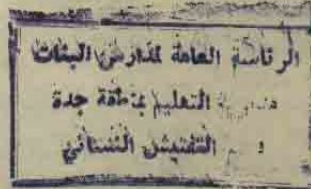 الرئاسة العامة لمدارس البنات
التعليم بمنطقة جدة
التفتيش النسائي